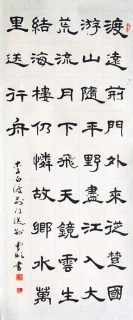 渡遠荊門外來從楚國
游山隨平野盡江入大
荒流月下飛天鏡雲生
結海樓仍憐故鄉水萬
里送行舟
李白渡荊門送別 書